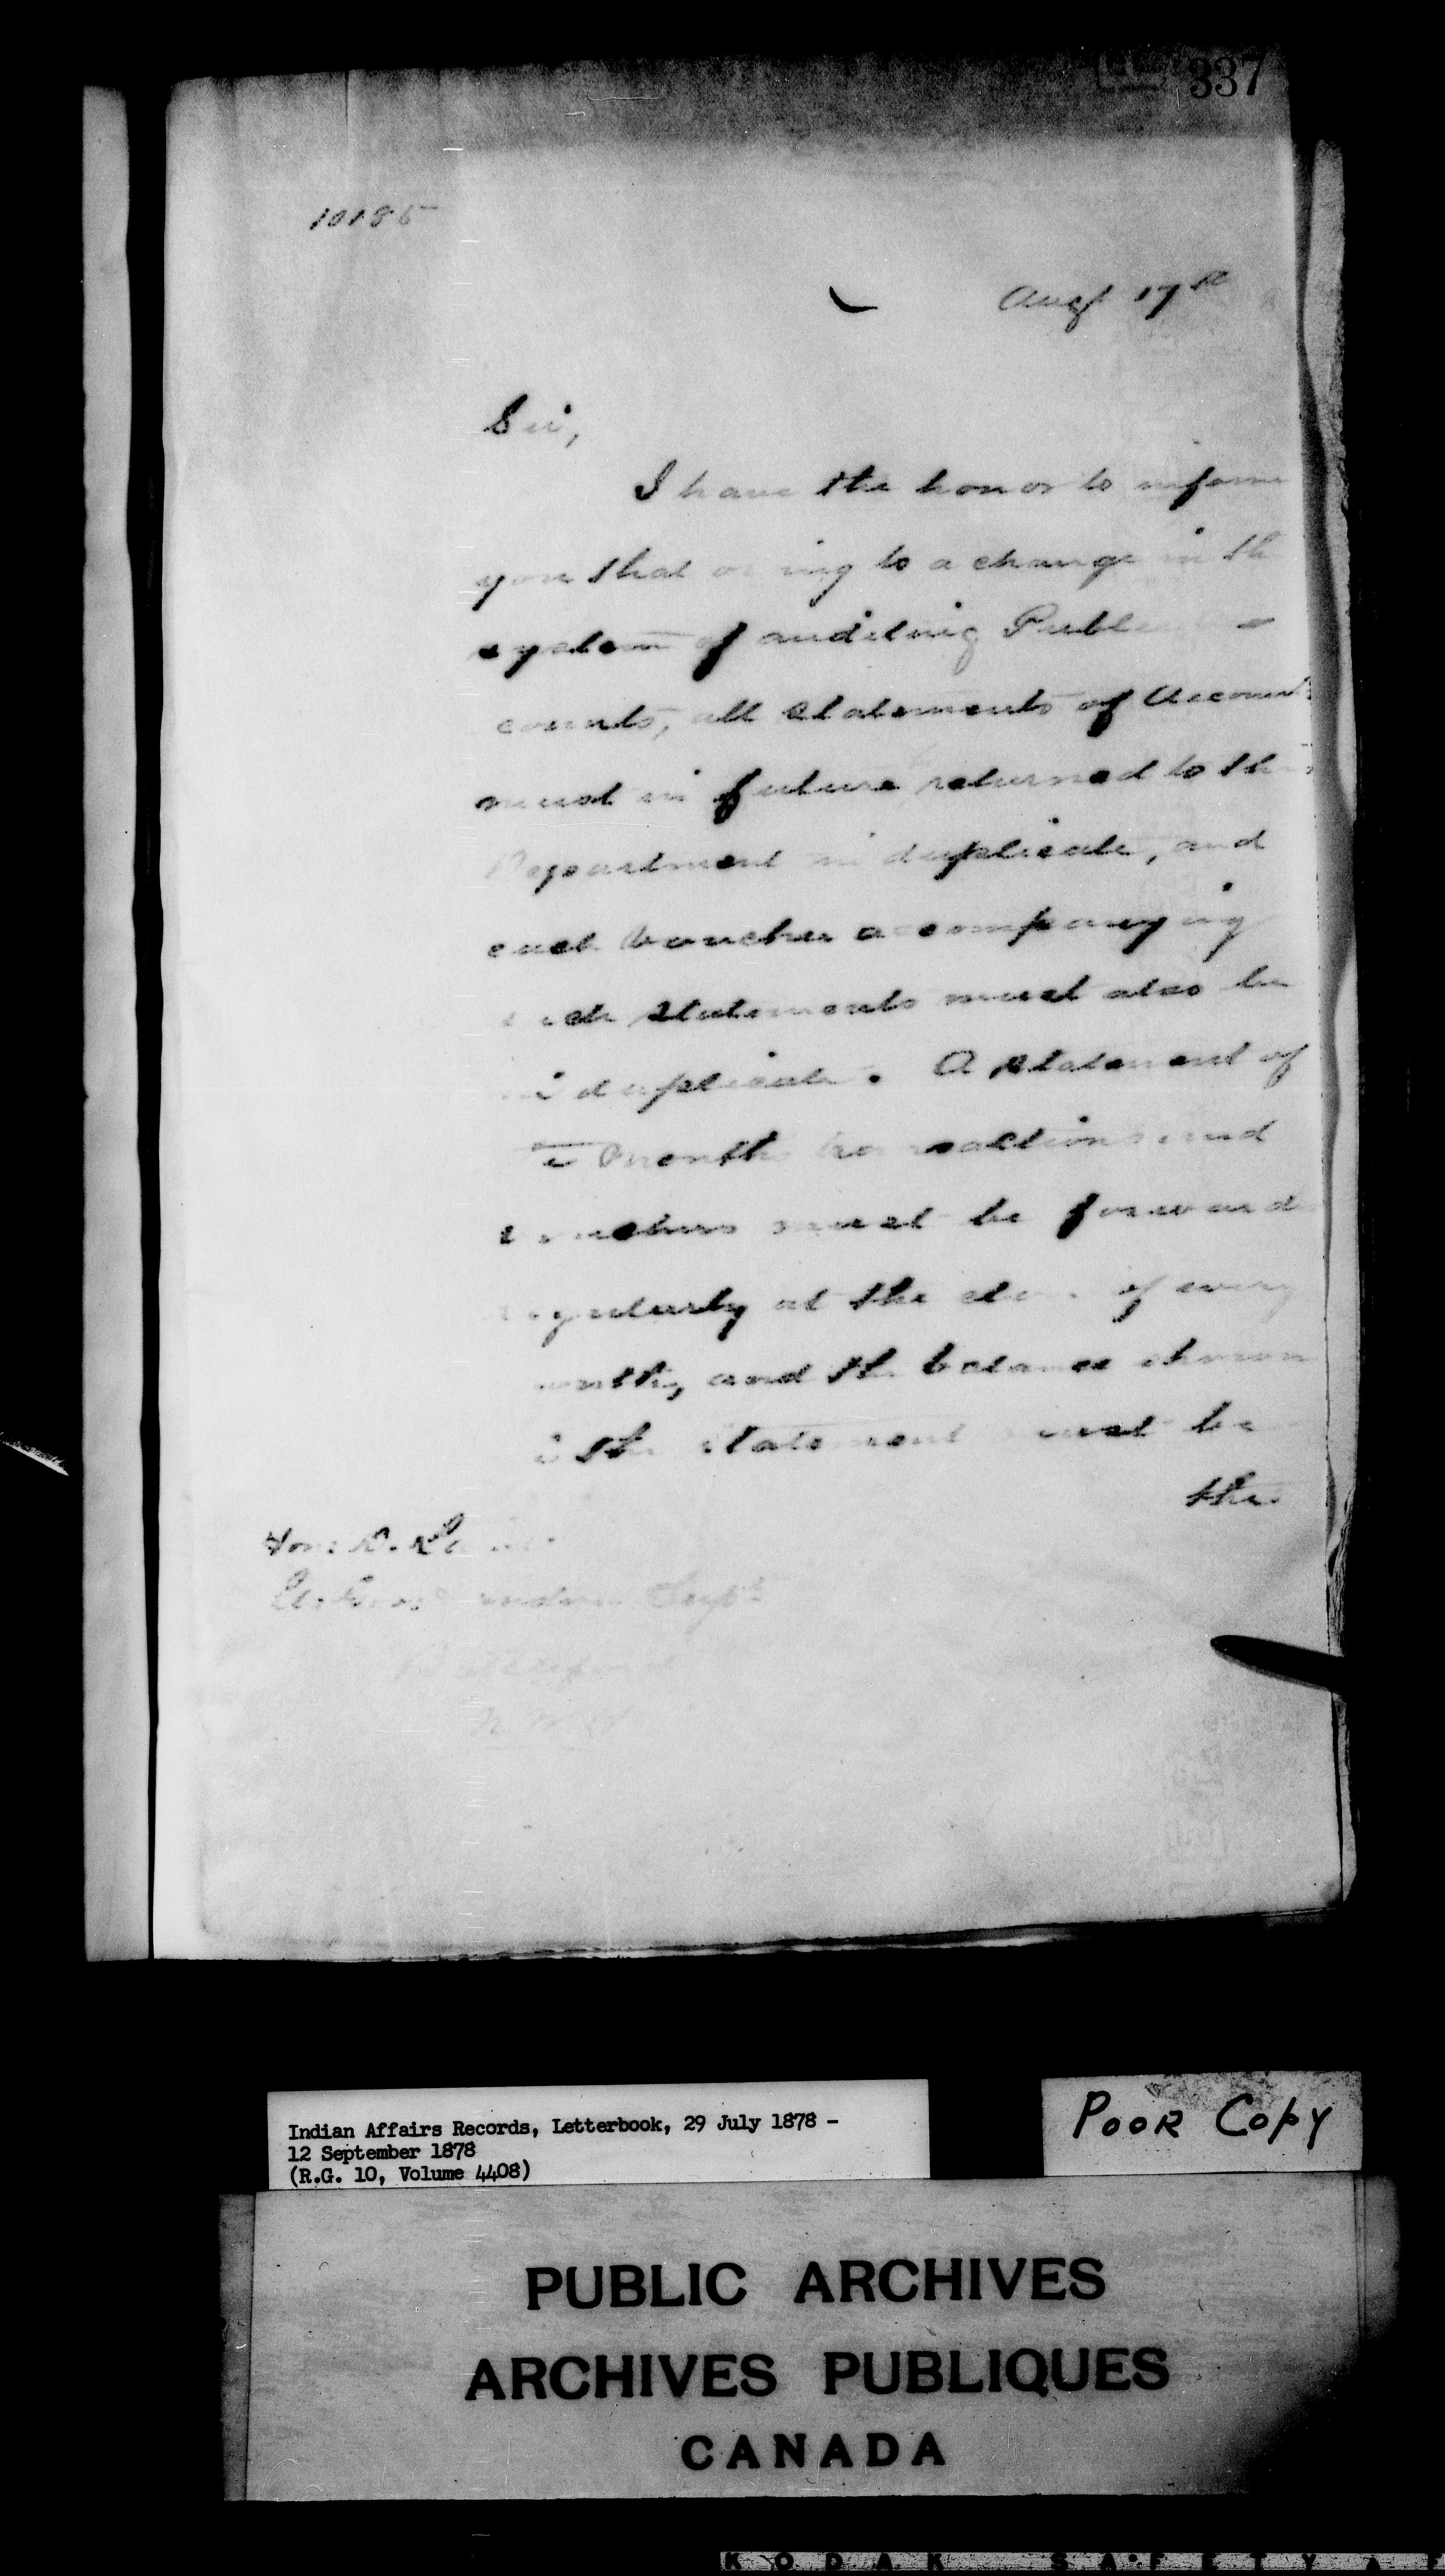 337
10185
Augt 17th
Sir,
I have the honor to inform
you that owing to a change in th
system of auditing Public
counts, all statements of Account
must in future returned to this
Department in duplicate, and
each voucher accompanying
such statements must also be
in duplicate. A statement of
months transactions and
vouchers must be forward
regularly at the close of every
month, and the balance shown
the statement must be
the
Hon: D. Laird
Indian Supt
Battleford
N.W.T.
Indian Affairs Records, Letterbook, 29 July 1878 -
12 September 1878
(R.G. 10, Volume 4408)
POOR COPY
PUBLIC ARCHIVES
ARCHIVES PUBLIQUES
CANADA
KODAK SAFETY